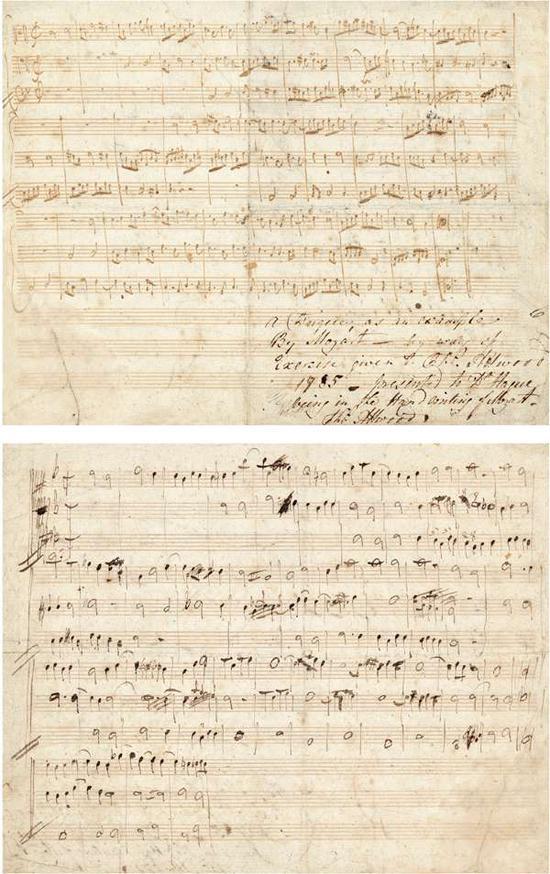 a Fugue, as an example
By Mozart — by way of
Exercise given to Thos. Attwood
1785 — presented to Dr Hague
being in the Hand writing of Mozart.
Thos. Attwood